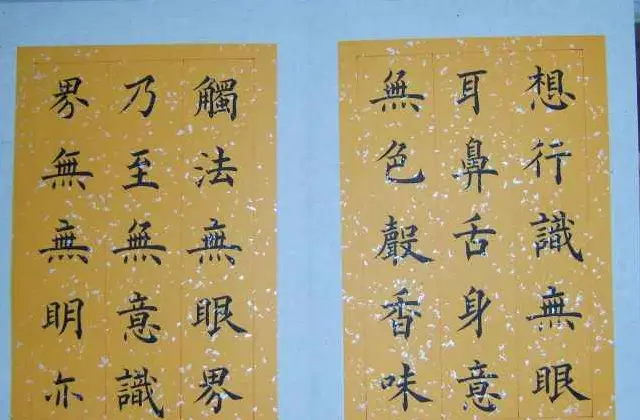 想行識無眼
耳鼻舌身意
無色聲香味
觸法無眼界
乃至無意識
界無無明亦